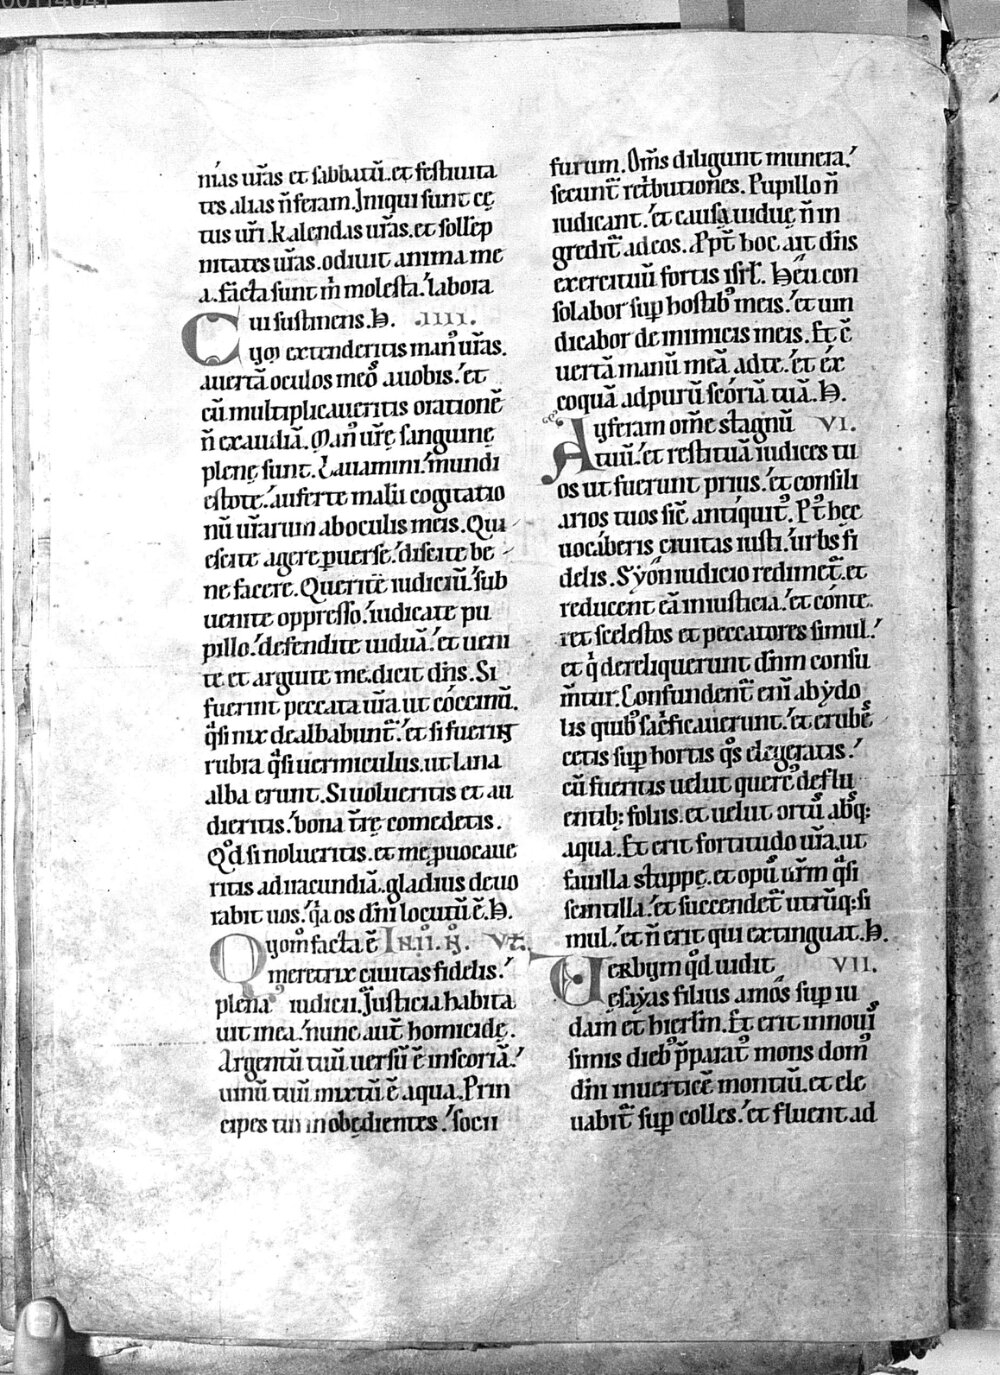 nias ur̃as et sabbatũ. et festiuita
tes alias ñ feram. Iniqui sunt cę
tus ur̃i. kalendas ur̃as. et sollẽp
nitates ur̃as. odiuit anima me
a. facta sunt m̃ molesta. labora
ui sustinens. h. .IIII.
Cvm extenderitis man᷒ ur̃as.
auertã oculos meo᷒ a uobis. et
cũ multiplicaueritis orationẽ
ñ exaudiã. Man᷒ ur̃ę sanguinę
plenę sunt. Lauamini. mundi
estote. auferte malũ cogitatio
nũ ur̃arum ab oculis meis. Qui
escite agere ꝑuerse. discite be
ne facere. Querite iudiciũ. sub
uenite oppresso. iudicate pu
pillo. defendite uiduã. et ueni
te et arguite me. dicit dñs. Si
fuerint peccata ur̃a ut coccinũ.
qͣsi nix dealbabunt᷑. et si fuerint
rubra qͣsi uermiculus. ut lana
alba erunt. Si uolueritis et au
dieritis. bona tr̃ę comedetis.
Qd̕ si nolueritis. et me ꝓuocaue
ritis ad iracundiã. gladius deuo
rabit uos. qͥa os dñi locutũ ẽ. h.
Qvom̊ facta ẽ V.
meretrix ciuitas fidelis.
plena iudicii. Iusticia habita
uit in ea. nunc aut̃ homicidę.
Argentũ tuũ uersũ ẽ in scoriã.
uinũ tuũ mixtũ ẽ aqua. Prin
cipes tui inobędientes. socii
furum. Om̃s diligunt munera.
secunt᷑ ret̕butiones. Pupillo ñ
iudicant. et causa uiduę ñ in
gredit᷑ ad eos. Ppt̃ hoc ait dñs
exercituũ fortis isrl̃. Heu con
solabor sup̱ hostib᷒ meis. et uin
dicabor de inimicis meis. Et cõ
uertã manũ meã ad te. et ex
coquã ad purũ scoriã tuã. h.
Avferam om̃e stagnũ VI.
tuũ. et restituã iudices tu
os ut fuerunt prius. et consili
arios tuos sic̃ antiquit᷒. P᷒t hęc
uocaberis ciuitas iusti. urbs fi
delis. Syon iudicio redimet᷑. et
reducent eã in iusticia. et conte
ret scelestos et peccatores simul.
et qͥ dereliquerunt dñm consu
m̃tur. Confundent᷑ eni ab ydo
lis quib᷒ sac̃ficauerunt. et erube
cetis sup̱ hortis qͦs elegeratis.
cũ fueritis uelut querc᷒ deflu
entib; foliis. et uelut ort᷒ absq;
aqua. Et erit fortitudo ur̃a. ut
fauilla stuppę. et op᷒ ur̃m qͣsi
scintilla. et succendet᷑ utrũq; si
mul. et ñ erit qui extinguat. h.
Verbvm qd̕ uidit VII.
esayas filius amos sup̱ iu
dam et hierlm̃. Et erit in noui
simis dieb᷒ p̃parat᷒ mons dom᷒
dñi in uerticẽ montiũ. et ele
uabit᷑ sup̱ colles. et fluent ad